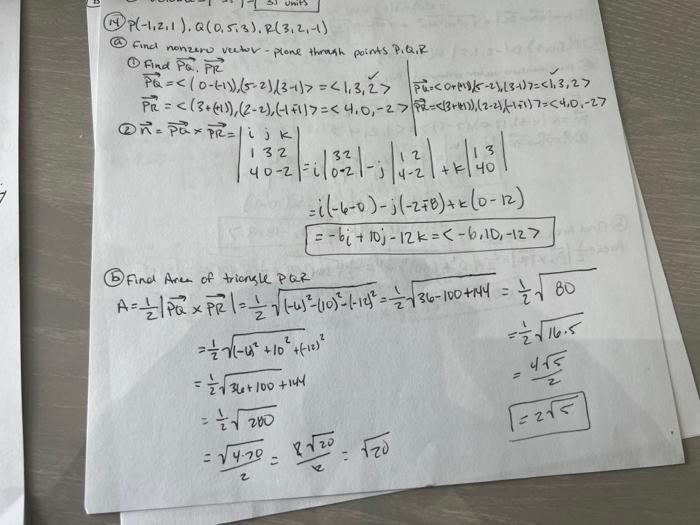 33 units
(14) P(-1,2,1), Q(0,5,3), R(3,2,-1)
(a) Find nonzero vector - plane through points P, Q, R
① Find PQ, PR
PQ = <(0-(-1)),(5-2),(3-1)> = <1,3,2> ✓
PR = <(3+(+1)),(2-2),(-1+1)> = <4,0,-2>
PQ = <0+(+1),(5-2),(3-1)> = <1,3,2>
PR = <(3+(+1)),(2-2),(-1+1)> = <4,0,-2>
② n = PQ x PR = | i j k | = i |3 2| - j |1 2| + k |1 3|
1 3 2
4 0 -2 0 -2 4 -2 4 0
= i(-6-0) - j(-2-8) + k(0-12)
= -6i + 10j - 12k = <-6,10,-12>
(b) Find Area of triangle PQR
A = 1/2 |PQ x PR| = 1/2 √(-6)²-(10)²-(-12)² = 1/2 √36-100+144 = 1/2 √80
= 1/2 √16·5
= 4√5/2
= 2√5
= 1/2 √(-6)²+10²+(-12)²
= 1/2 √36+100+144
= 1/2 √280
= √4·70/2 = 2√20/2 = √20